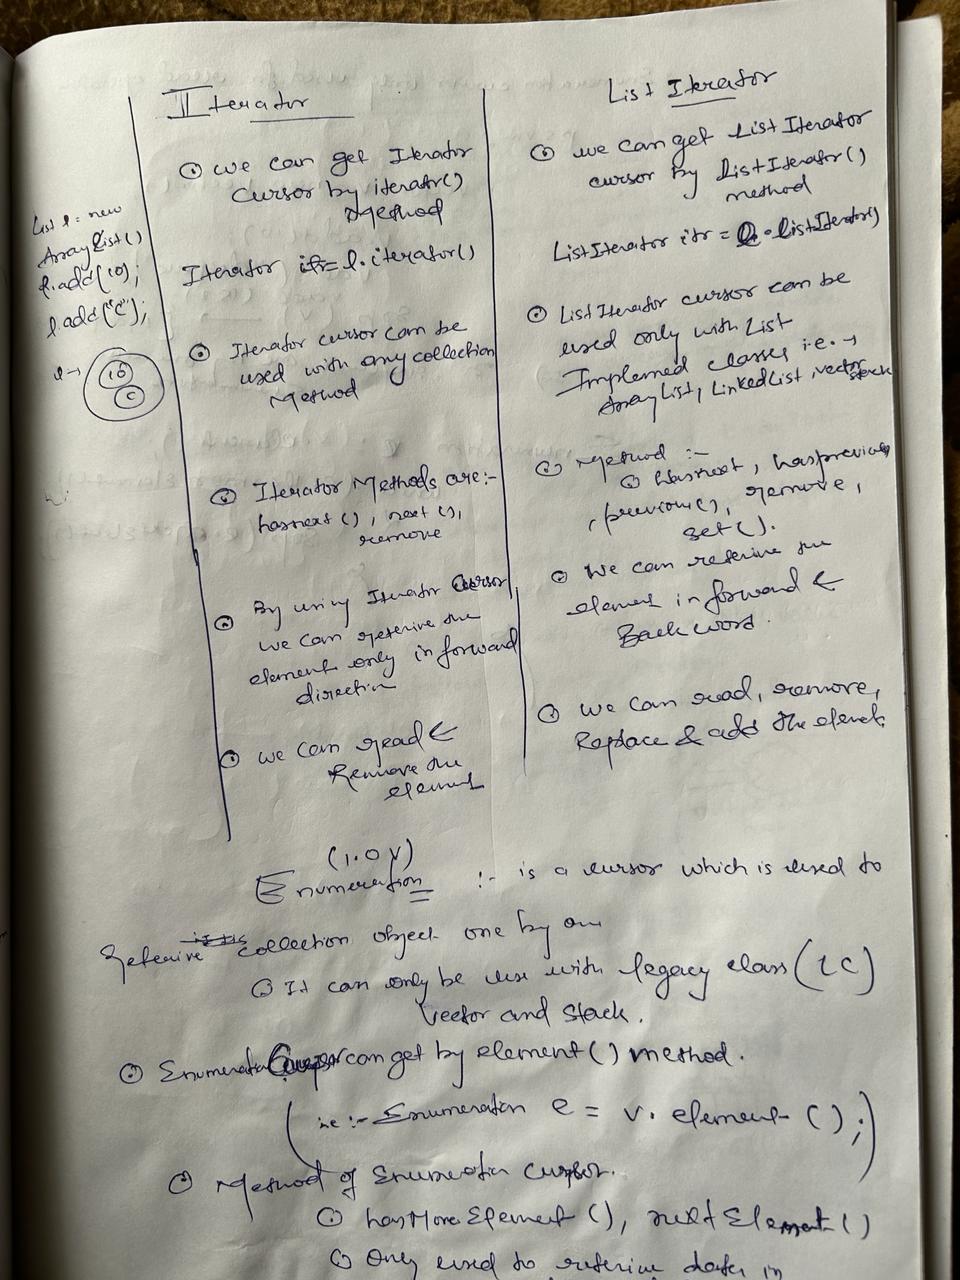 List l = new
ArrayList()
l.add(10);
l.add("C");
l →
10
C
Iterator
⊙ we can get Iterator
cursor by iterator()
Method
Iterator itr = l.iterator()
⊙ Iterator cursor can be
used with any collection
Method
⊙ Iterator Methods are:-
hasnext(), next(),
remove
⊙ By using Iterator Cursor
we can reterive the
element only in forward
direction
⊙ we can read &
Remove the
element
List Iterator
⊙ we can get List Iterator
cursor by ListIterator()
method
ListIterator itr = l.listIterator()
⊙ List Iterator cursor can be
used only with List
Implemed classes i.e. →
ArrayList, LinkedList, vector
stack
⊙ Method :-
⊙ Hasnext, hasprevious
, previous(), remove,
set().
⊙ We can reterive the
element in forward &
Backword.
⊙ we can read, remove,
Replace & add the element
(1.0 V)
Enumeration :- is a cursor which is used to
reterive collection object one by one
⊙ It can only be use with legacy class (LC)
vector and stack.
⊙ Enumeration Cursor can get by element() method.
(ie :- Enumeration e = v. element();)
⊙ Method of Enumeration cursor.
⊙ hasMoreElement(), nextElement()
⊙ Only used to reterive data in